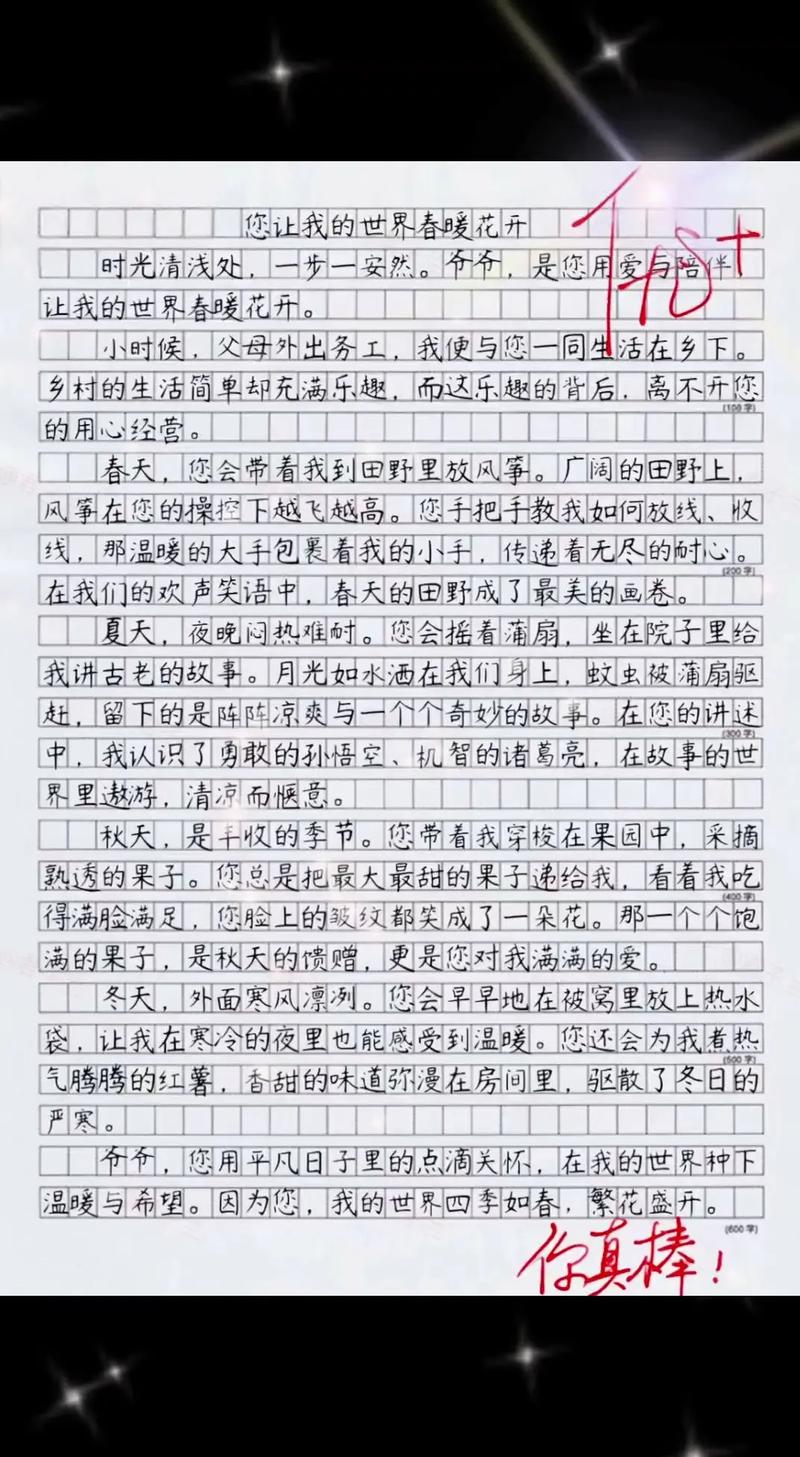 您让我的世界春暖花开
时光清浅处，一步一安然。爷爷，是您用爱与陪伴
让我的世界春暖花开。
小时候，父母外出务工，我便与您一同生活在乡下。
乡村的生活简单却充满乐趣，而这乐趣的背后，离不开您
(100字)
的用心经营。
春天，您会带着我到田野里放风筝。广阔的田野上，
风筝在您的操控下越飞越高。您手把手教我如何放线、收
线，那温暖的大手包裹着我的小手，传递着无尽的耐心。
(200字)
在我们的欢声笑语中，春天的田野成了最美的画卷。
夏天，夜晚闷热难耐。您会摇着蒲扇，坐在院子里给
我讲古老的故事。月光如水洒在我们身上，蚊虫被蒲扇驱
赶，留下的是阵阵凉爽与一个个奇妙的故事。在您的讲述
(300字)
中，我认识了勇敢的孙悟空、机智的诸葛亮，在故事的世
界里遨游，清凉而惬意。
秋天，是丰收的季节。您带着我穿梭在果园中，采摘
熟透的果子。您总是把最大最甜的果子递给我，看着我吃
(400字)
得满脸满足，您脸上的皱纹都笑成了一朵花。那一个个饱
满的果子，是秋天的馈赠，更是您对我满满的爱。
冬天，外面寒风凛冽。您会早早地在被窝里放上热水
袋，让我在寒冷的夜里也能感受到温暖。您还会为我煮热
(500字)
气腾腾的红薯，香甜的味道弥漫在房间里，驱散了冬日的
严寒。
爷爷，您用平凡日子里的点滴关怀，在我的世界种下
温暖与希望。因为您，我的世界四季如春，繁花盛开。
(600字)
你真棒！